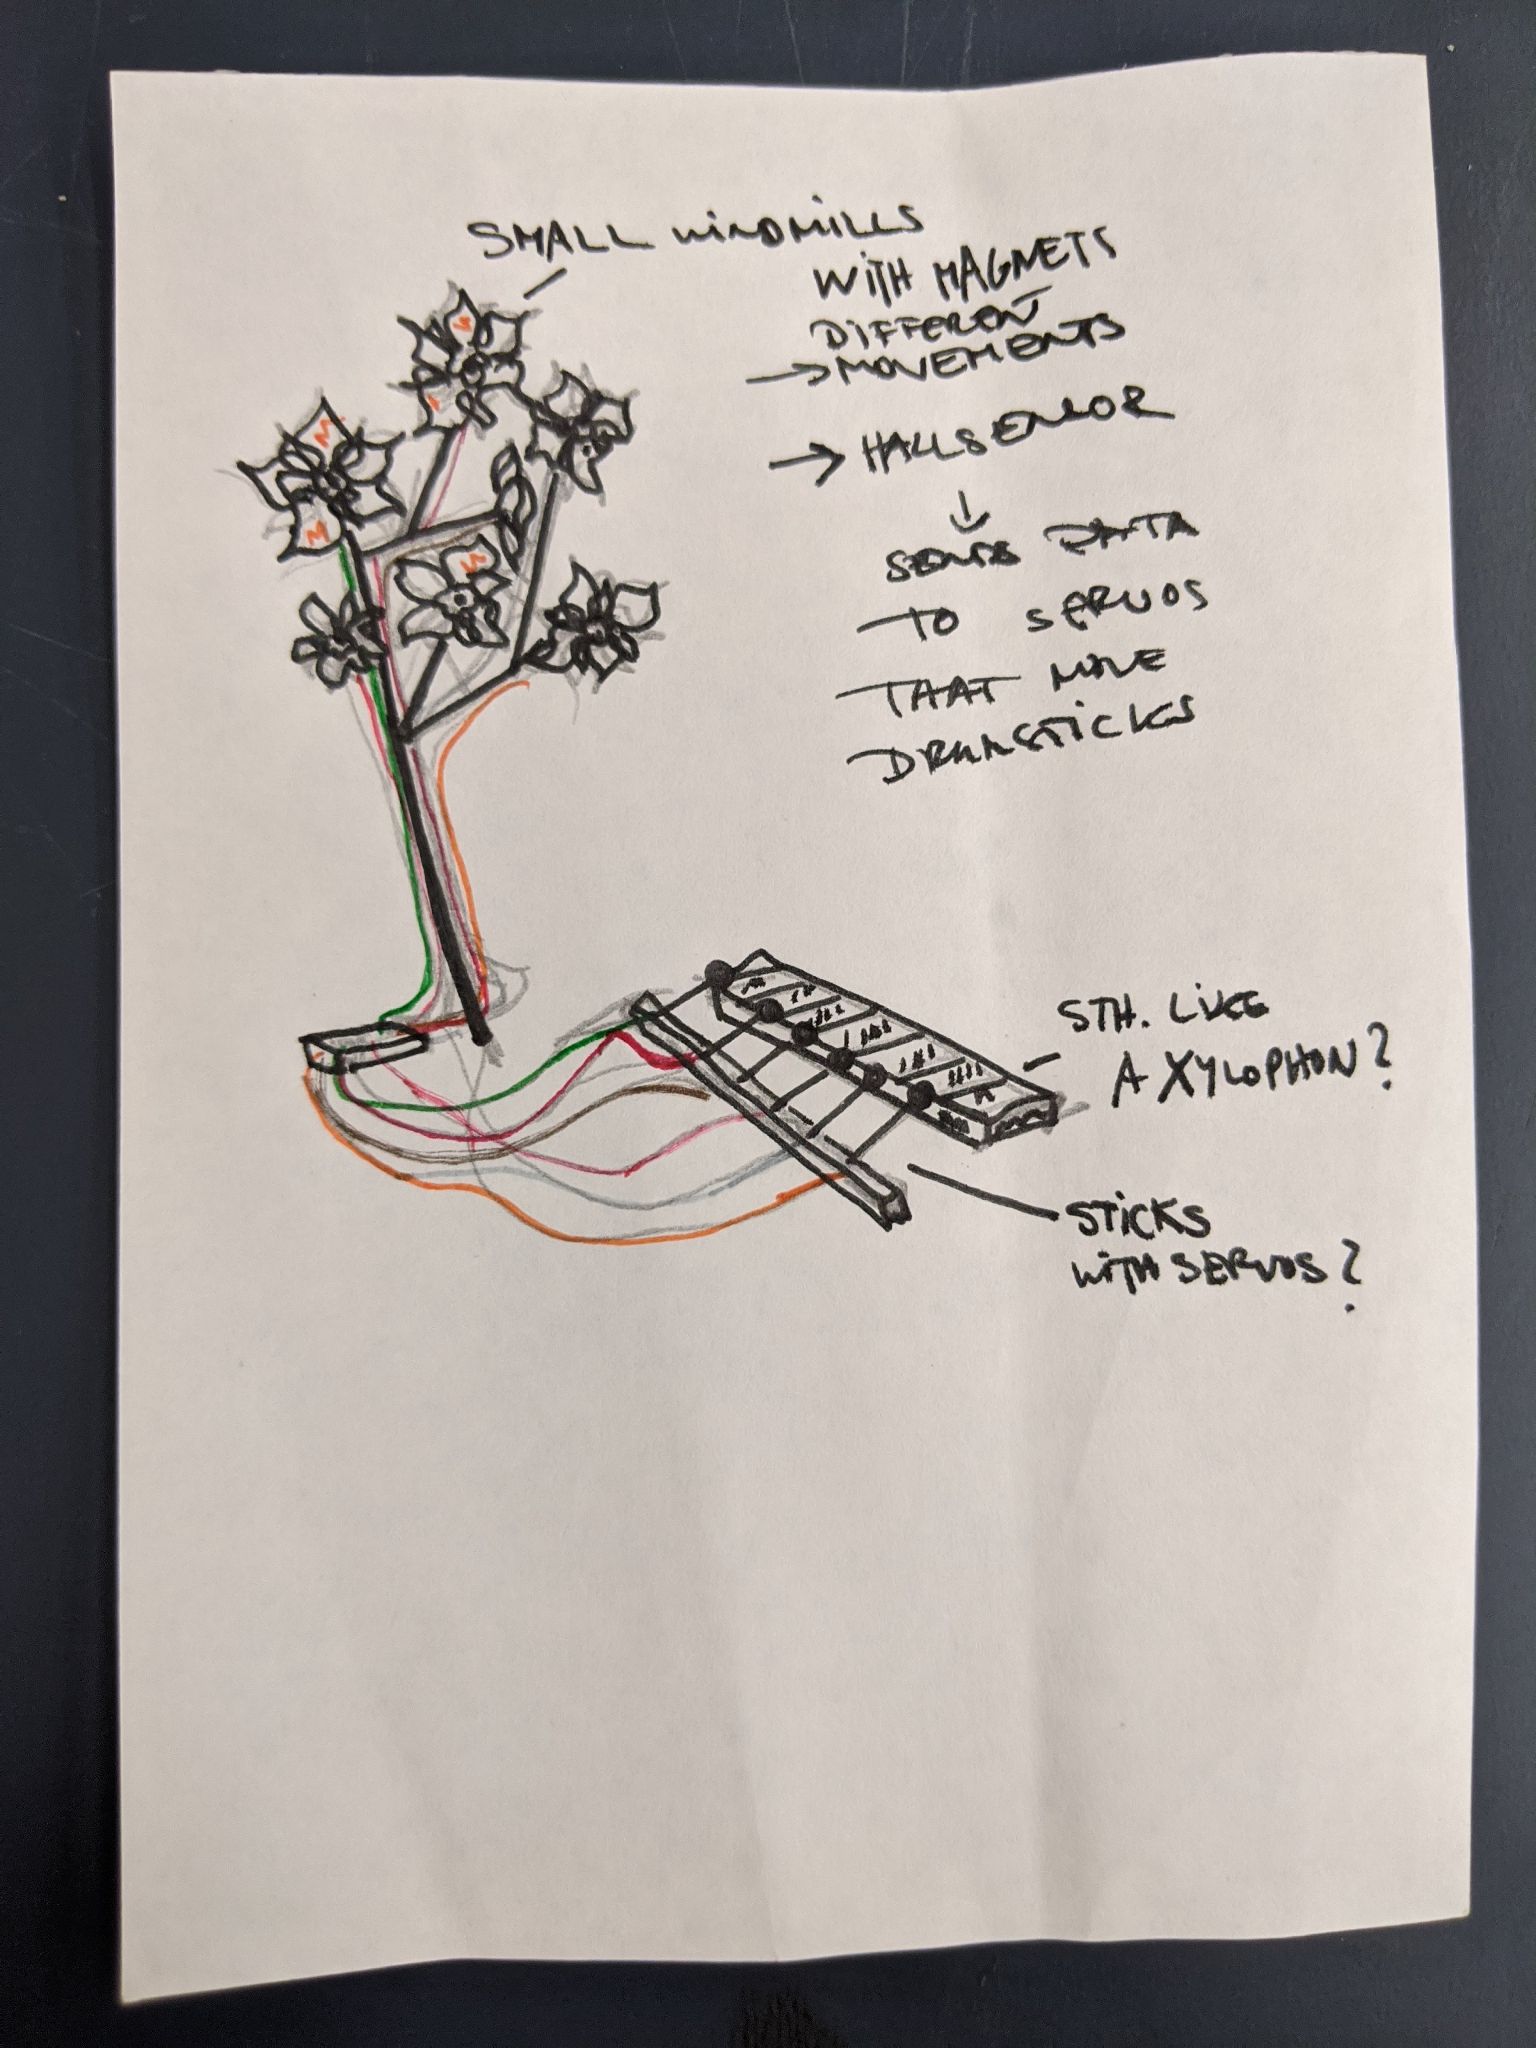 SMALL WINDMILLS
WITH MAGNETS
DIFFERENT
→ MOVEMENTS
→ HALLSENSOR
↓
SENDS DATA
TO SERVOS
THAT MOVE
DRUMSTICKS
M
M
M
STH. LIKE
A XYLOPHON?
STICKS
WITH SERVOS?